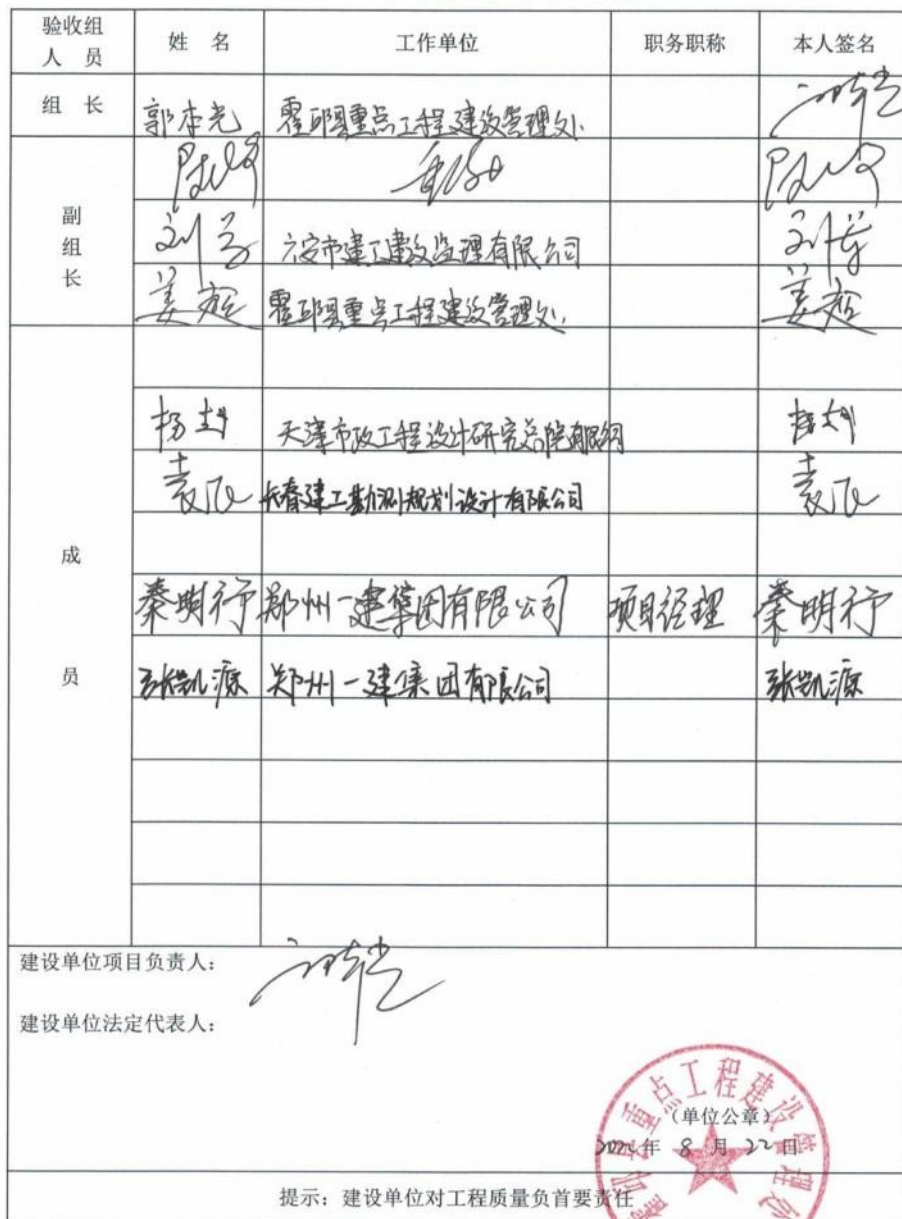 验收组
人 员
姓 名
工作单位
职务职称
本人签名
组 长
郭本光
霍邱县重点工程建设管理处
副
组
长
六安市建工建设监理有限公司
姜
霍邱县重点工程建设管理处
姜
成
员
杨
天津市政工程设计研究总院有限公司
杨
袁飞
长春建工勘测规划设计有限公司
袁飞
秦明行
郑州一建集团有限公司
项目经理
秦明行
张凯源
郑州一建集团有限公司
张凯源
建设单位项目负责人:
建设单位法定代表人:
霍邱县重点工程建设管理处
(单位公章)
年 8 月 22 日
提示: 建设单位对工程质量负首要责任